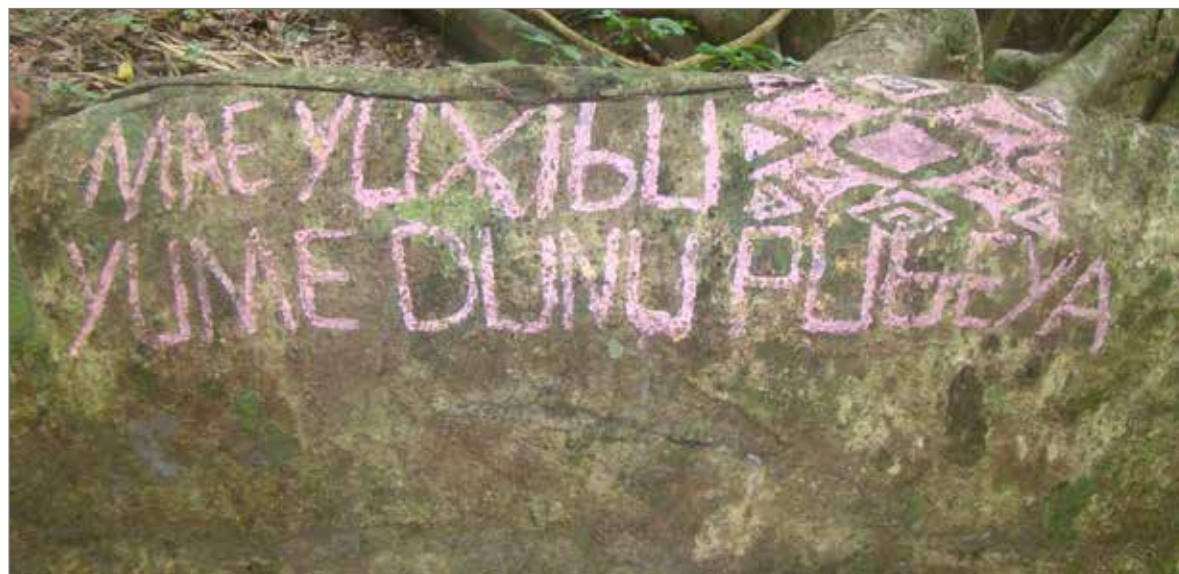 MAE YUXIbU
YUME DUNU PUbEYA